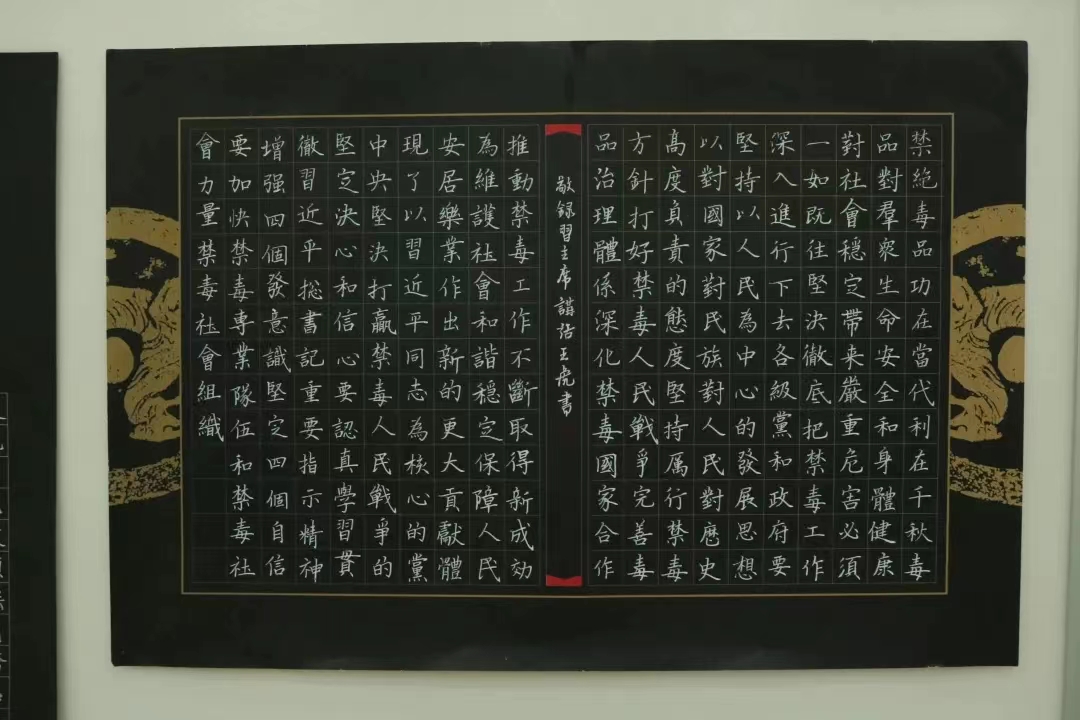 禁絕毒品功在當代利在千秋毒
品對羣衆生命安全和身體健康
對社會穩定帶来嚴重危害必須
一如既往堅決徹底把禁毒工作
深入進行下去各級黨和政府要
堅持以人民為中心的發展思想
以對國家對民族對人民對厯史
高度負責的態度堅持厲行禁毒
方針打好禁毒人民戰爭完善毒
品治理體係深化禁毒國家合作
敬録習主席講话王虎書
推動禁毒工作不斷取得新成効
為維護社會和諧穩定保障人民
安居樂業作出新的更大貢獻體
現了以習近平同志為核心的黨
中央堅決打贏禁毒人民戰爭的
堅定決心和信心要認真學習貫
徹習近平総書記重要指示精神
增强四個發意識堅定四個自信
要加快禁毒專業隊伍和禁毒社
會力量禁毒社會組織